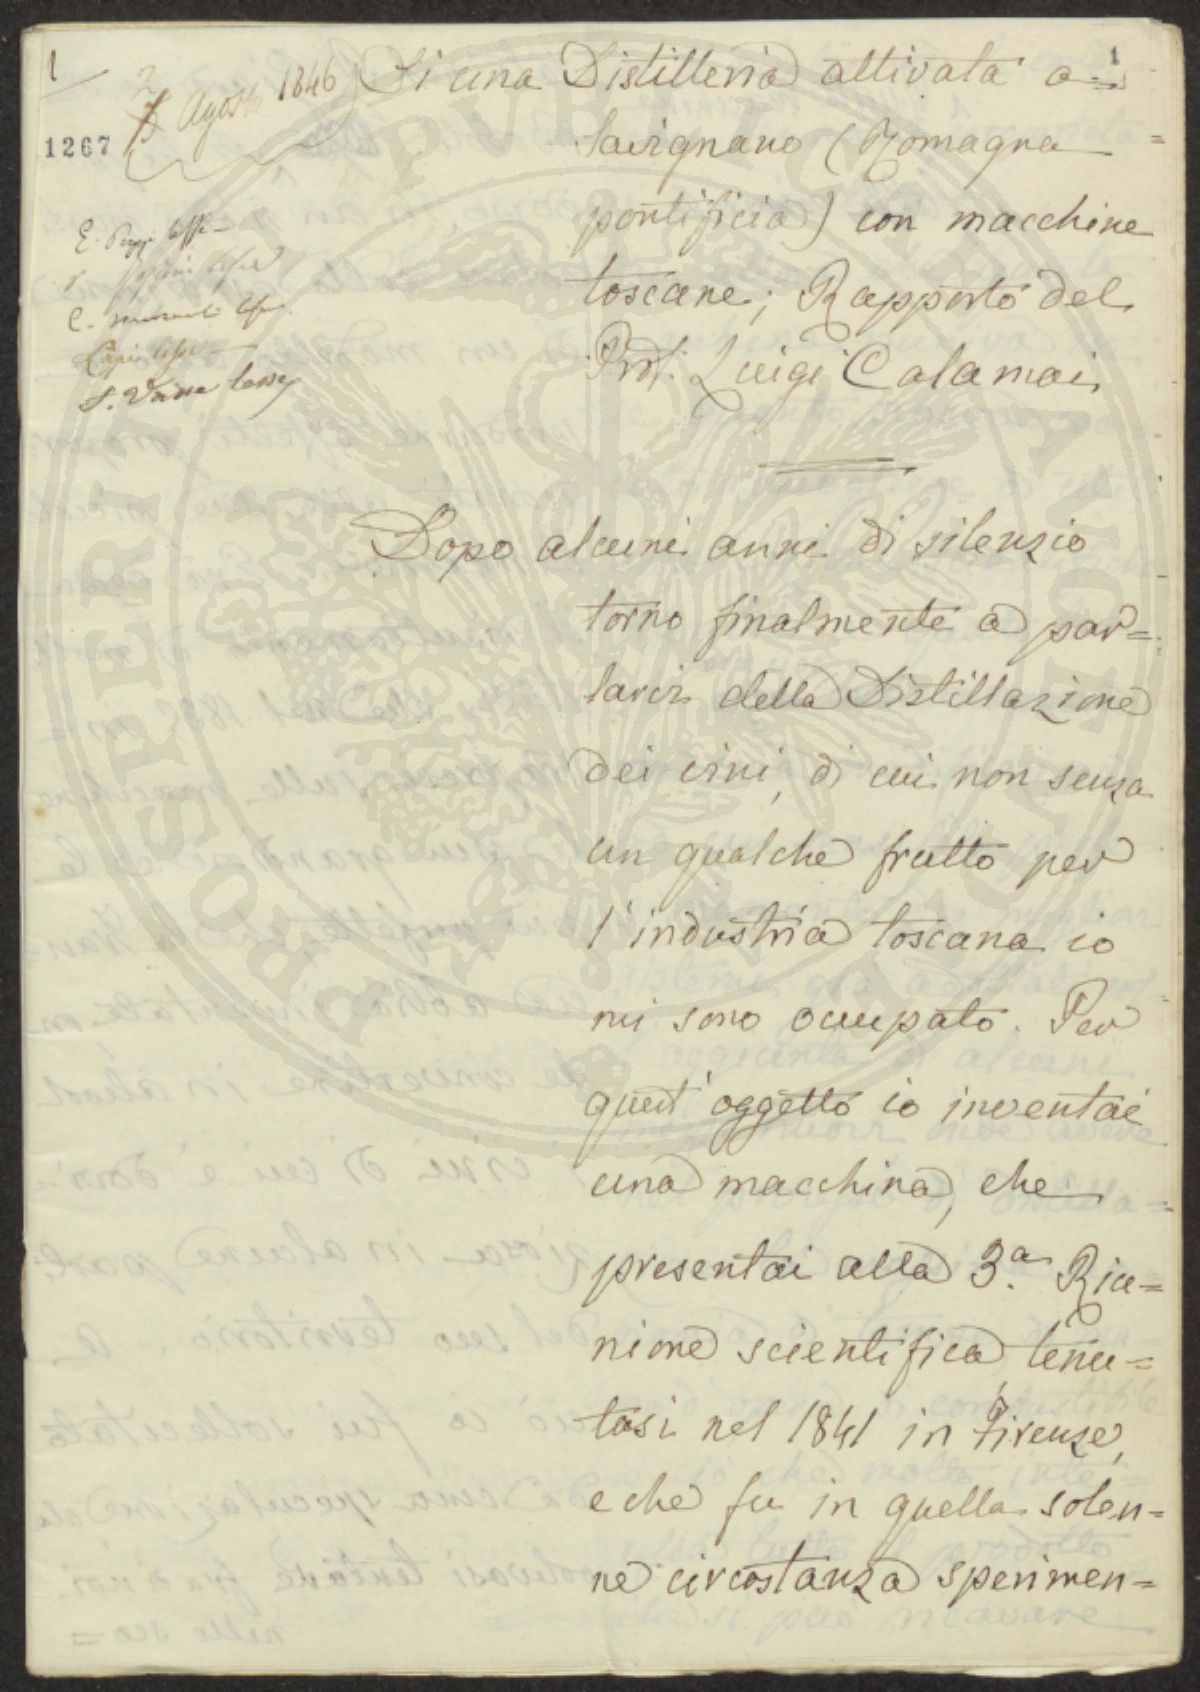 1
1
1267
2 Agosto 1846
Di una Distilleria attivata a
Savignano (Romagna =
pontificia) con macchine
toscane; Rapporto del
Prof. Luigi Calamai.
Dopo alcuni anni di silenzio
torno finalmente a par=
larvi della Distillazione
dei vini, di cui non senza
un qualche frutto per
l'industria toscana io
mi sono occupato. Per
quest'oggetto io inventai
una macchina, che =
presentai alla 3.a Riu=
nione scientifica, tenu=
tasi nel 1841 in Firenze,
e che fu in quella solen=
ne circostanza sperimen=
PROSPERITAS PUBLICA